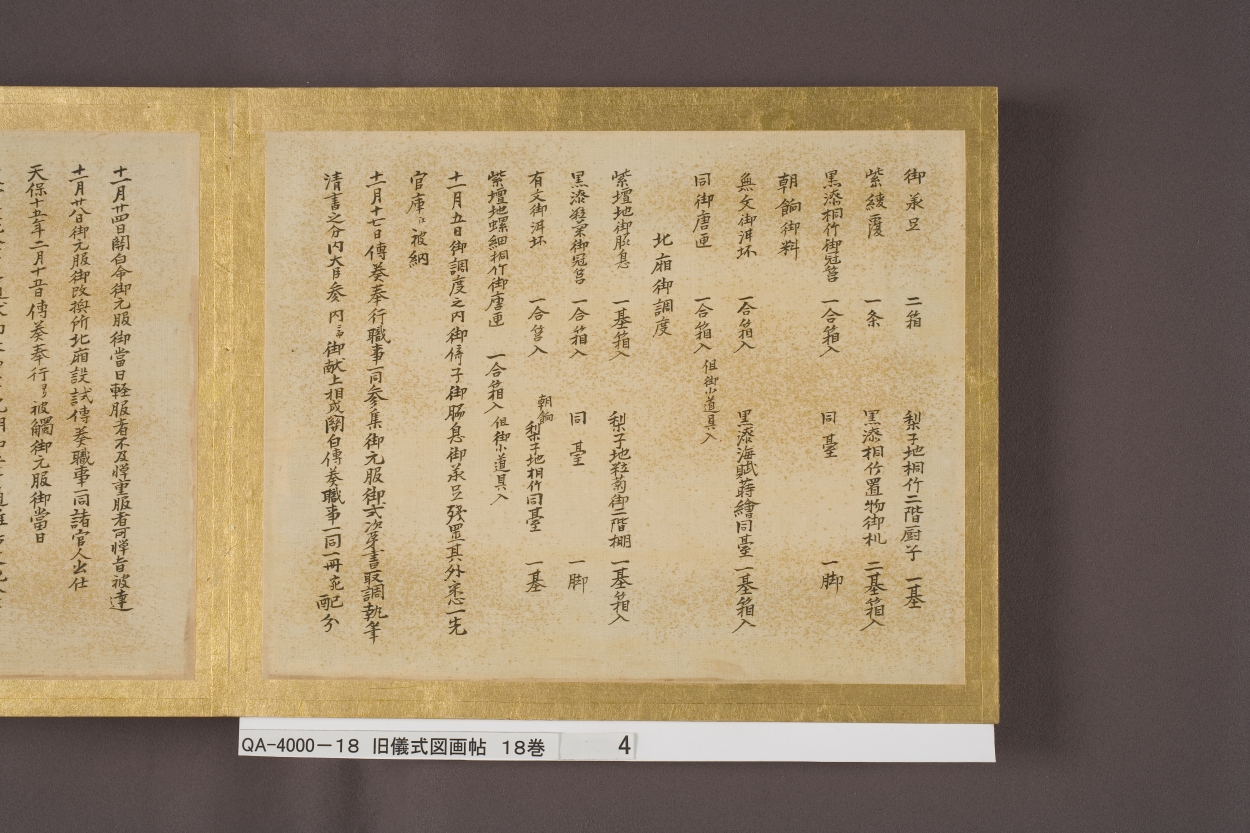 御菓昰 二箱 梨子地桐竹二階厨子 一基
紫綾覆 一条 黒漆桐竹置物御机 二基箱入
黒漆桐竹御冠筥 一合箱入 同臺 一脚
朝餉御料
無文御泔坏 一合箱入 黒漆海賦蒔繪同臺 一基箱入
同御唐匣 一合箱入 但御小道具入
北廂御調度
紫壇地御脇息 一基箱入 梨子地 菊御二階棚 一基箱入
黒漆 御冠筥 一合箱入 同臺 一脚
有文御泔坏 一合筥入 朝餉 梨子地桐竹同臺 一基
紫壇地螺細桐竹御唐匣 一合箱入 但御小道具入
十一月五日御調度之内御倚子御脇息御 残置其外悉一先
官庫江被納
十二月十七日傳奏奉行職事一同参集御元服御式次第書取調執筆
清書之分内大臣参内ニ而御献上相成關白傳奏職事一同一冊宛配分
十一月廿四日關白命御元服御當日軽服者不及憚重服者可憚旨被達
十二月廿八日御元服御改換所北廂設試傳奏職事一同諸官人出仕
天保十五年二月十五日傳奏奉行ヨリ被觸御元服御當日
QA-4000-18 旧儀式図画帖 18巻 4